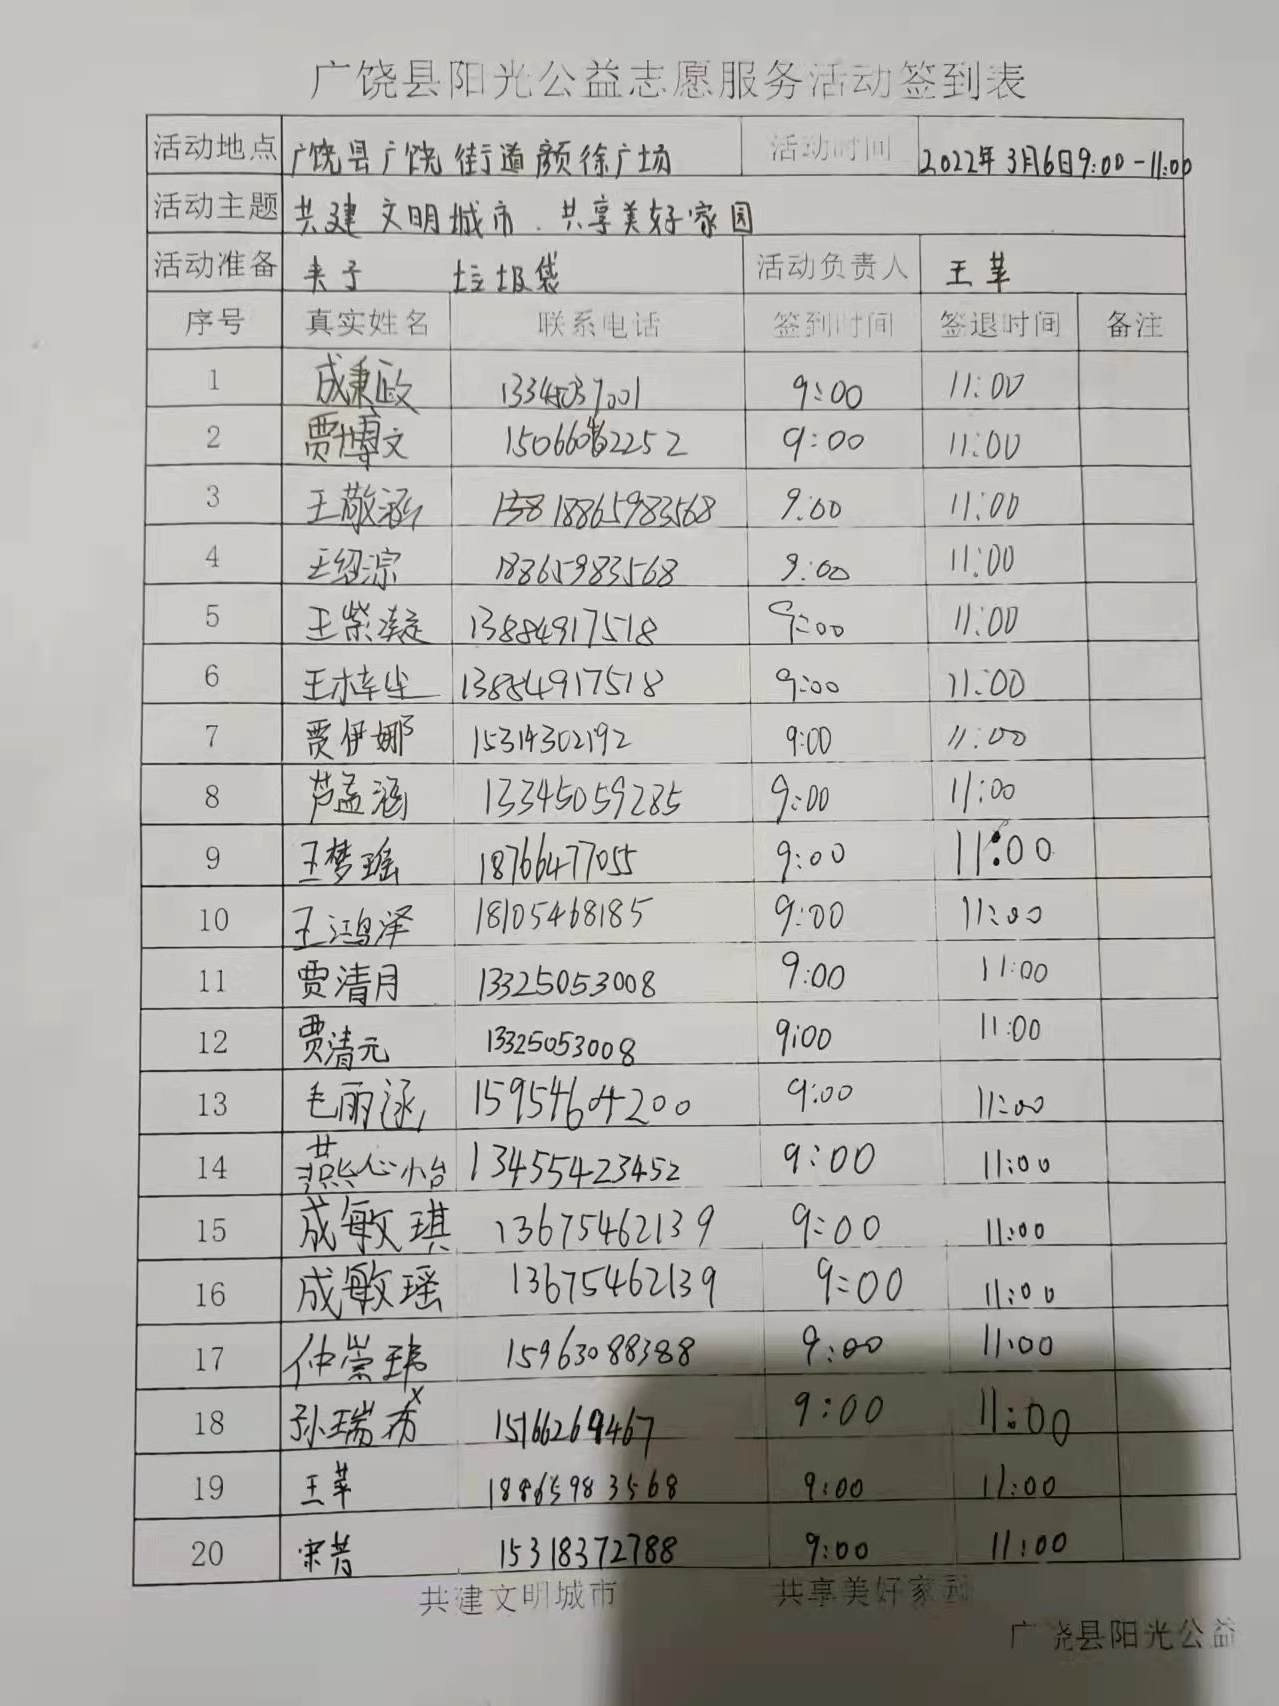 广饶县阳光公益志愿服务活动签到表
活动地点 广饶县广饶街道颜徐广场 活动时间 2022年3月6日9:00-11:00
活动主题 共建文明城市、共享美好家园
活动准备 夹子 垃圾袋 活动负责人 王苹
序号 真实姓名 联系电话 签到时间 签退时间 备注
1 成秉政 9:00 11:00
2 贾博文 9:00 11:00
3 王敬涵 15818865983568 9:00 11:00
4 王绍淙 18865983568 9:00 11:00
5 王紫凝 13884917518 9:00 11:00
6 13884917518 9:00 11:00
7 贾伊娜 15314302192 9:00 11:00
8 芦孟涵 13345059285 9:00 11:00
9 王梦瑶 18766477055 9:00 11:00
10 王鸿泽 18105468185 9:00 11:00
11 贾清月 13325053008 9:00 11:00
12 贾清元 13325053008 9:00 11:00
13 毛丽涵 15954604200 9:00 11:00
14 燕心怡 13455423452 9:00 11:00
15 成敏琪 13675462139 9:00 11:00
16 成敏瑶 13675462139 9:00 11:00
17 仲崇玮 15963088388 9:00 11:00
18 孙瑞希 15166269467 9:00 11:00
19 王苹 18865983568 9:00 11:00
20 宋菁 15318372788 9:00 11:00
共建文明城市 共享美好家园
广饶县阳光公益